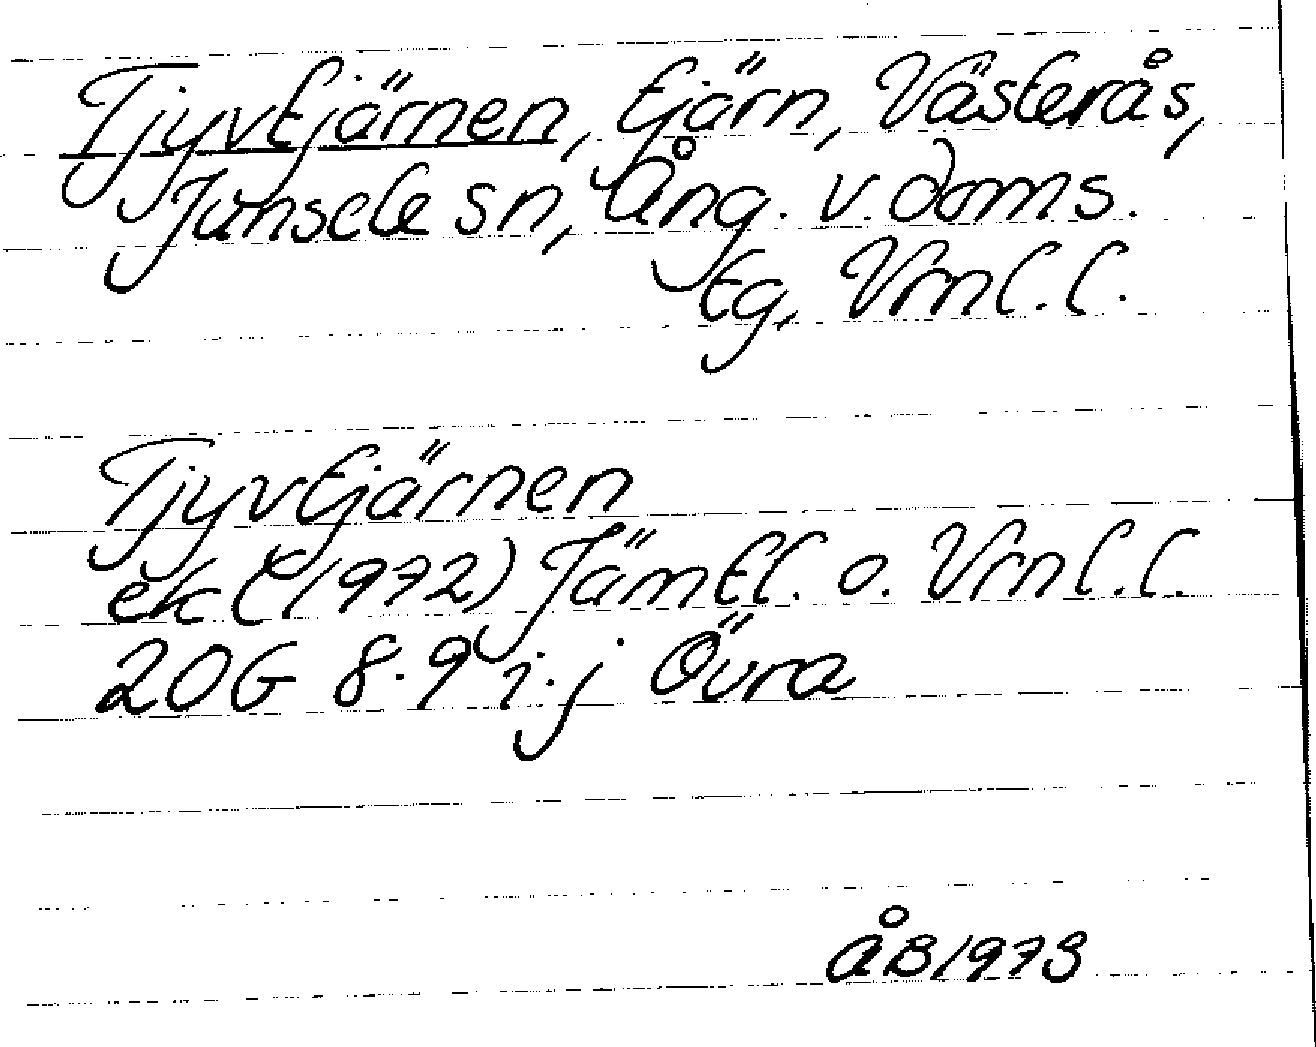 Tjyvtjärnen, tjärn, Västerås,
Junsele sn, Ång. v. doms.
tg, Vrnl. l.
Tjyvtjärnen
ek (1972) Jämtl. o. Vrnl. l.
20G 8-9 i-j Övra
ÅB 1973